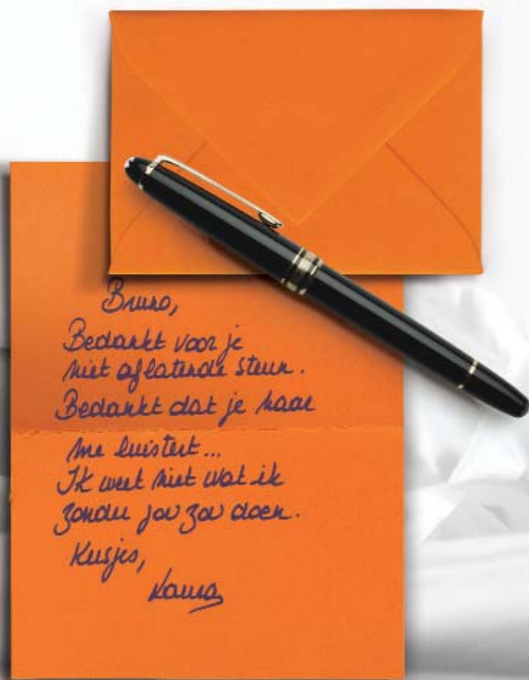 Bruno,
Bedankt voor je
niet aflatende steun.
Bedankt dat je naar
me luistert...
Ik weet niet wat ik
zonder jou zou doen.
Kusjes,
Laura